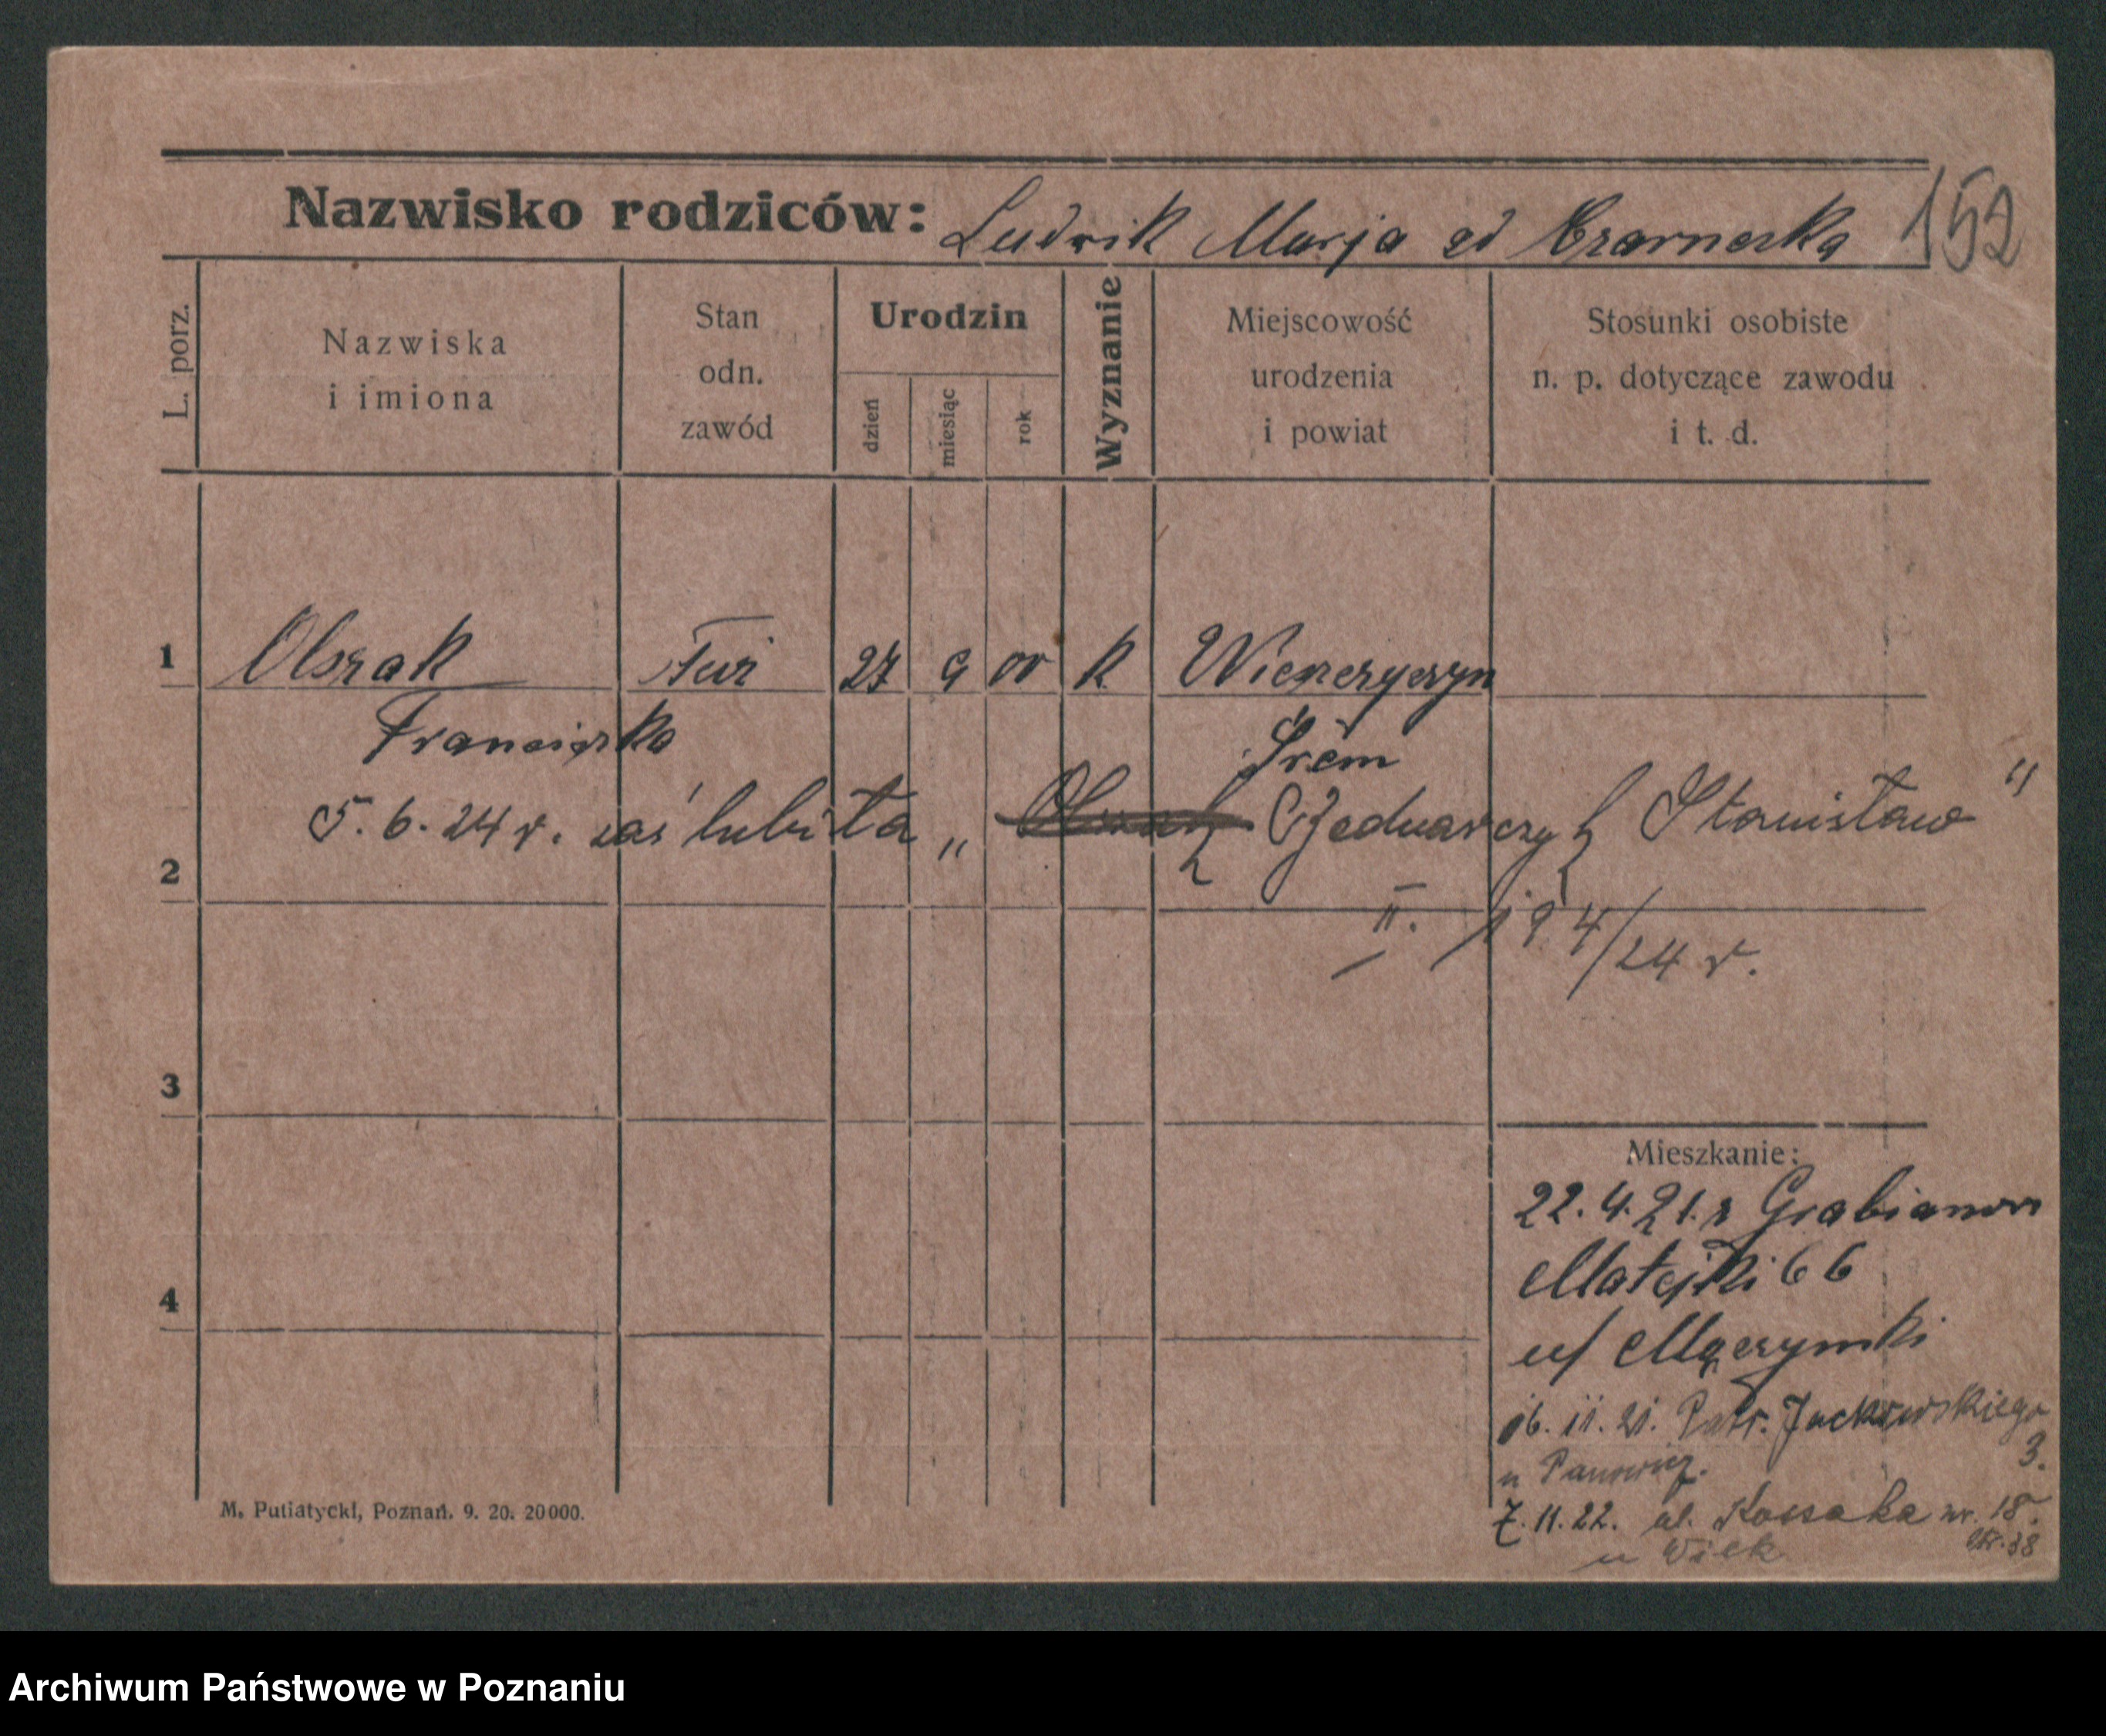 Nazwisko rodziców: Ludwik Marja zd Czarnecka 152
L. porz.
Nazwiska
i imiona
Stan
odn.
zawód
Urodzin
dzień
miesiąc
rok
Wyznanie
Miejscowość
urodzenia
i powiat
Stosunki osobiste
n. p. dotyczące zawodu
i t. d.
1 Olszak 27 9 00 k.
Franciszka Śrem
5. 6. 24 r. zaślubiła „ Jednarczyk Stanisław "
2
II. 194/24 r.
3
4
Mieszkanie:
22. 4. 21. z Grabianowo
Matejki 66
u/ Mączynski
16. 11. 21. Patr. Jackowskiego
3.
u
7. 11. 22. ul. Kossaka nr. 18.
u Wilk
M. Putiatycki, Poznań. 9. 20. 20000.
Archiwum Państwowe w Poznaniu